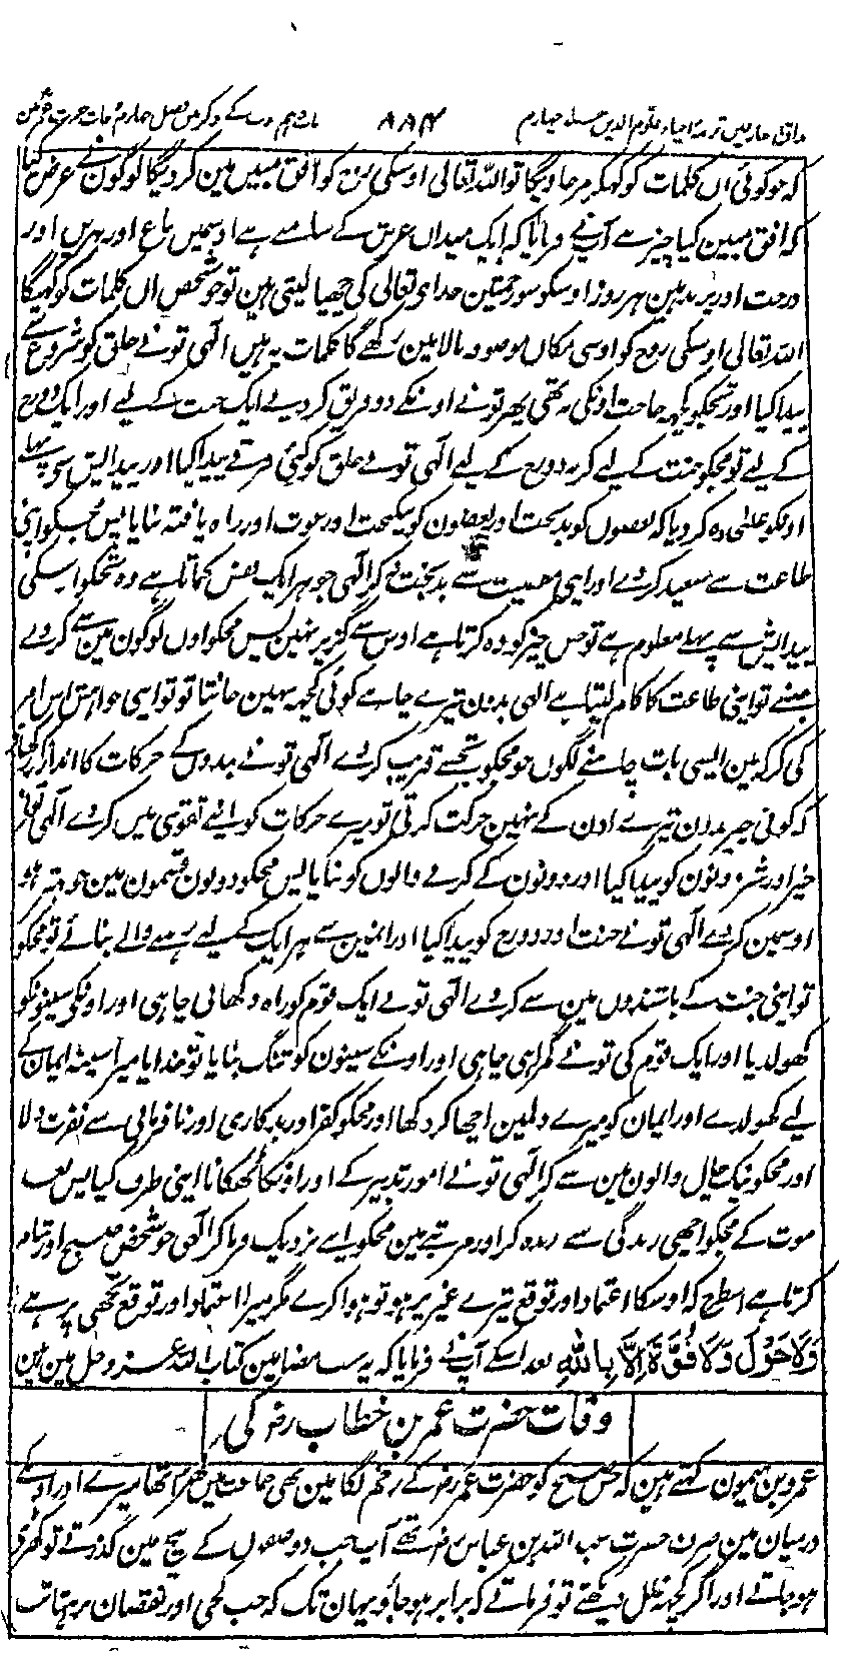 مذاق العارفین ترجمہ احیاء علوم الدین جلد چہارم ۸۸۴ باب دہم موت کے ذکر میں فصل چہارم وفات حضرت عمر میں
کہ جو کوئی ان کلمات کو کہکر مر جاویگا تو اللہ تعالی اوسکی روح کو افق مبین مین کر دیگا لوگون نے عرض کیا
کہ افق مبین کیا چیز ہے آپ نے فرمایا کہ ایک میدان عرش کے سامنے ہے اوسمیں باغ اور نہریں اور
درخت اور پرند ہین ہر روز اوسکو سو رحمتین خدای تعالی کی چھپا لیتی ہین تو جو شخص ان کلمات کو کہیگا
اللہ تعالی اوسکی روح کو اوسی مکان موصودہ بالا مین رکھے گا کلمات یہ ہیں الٰہی تو نے خلق کو شروع سے
پیدا کیا اور تجکو کچھ حاجت اونکی نہ تھی پھر تو نے اونکے دو فریق کر دیے ایک جنت کے لیے اور ایک دوزخ
کے لیے تو مجکو جنت کے لیے کر نہ دوزخ کے لیے الٰہی تو نے خلق کو کئی فرقے پیدا کیا اور پیدایش سی پہلے
اونکو علٰحدہ کر دیا کہ بعضوں کو بدبخت اور بعضون کو نیکبخت اور راہ یافتہ بنایا پس مجکو اپنی
طاعت سے سعید کر دے اور اپنی معصیت سے بدبخت نہ کر الٰہی جو ہر ایک نفس کماتا ہے وہ تجکو اوسکی
پیدایش سے پہلے معلوم ہے تو جس چیز کو وہ کرتا ہے اوس سے گزیر نہین پس مجکو اون لوگون مین سے کر دے
جنسے تو اپنی طاعت کا کام لیتا ہے الٰہی بدون تیرے چاہے کوئی کچھ نہین چاہتا تو تو اپنی خواہش اس امر
کی کر کہ مین ایسی بات چاہنے لگوں جو مجکو تجھسے قریب کر دے الٰہی تو نے بندوں کے حرکات کا اندازہ رکھا
کہ کوئی چیز بدون تیرے اذن کے نہین حرکت کرتی تو میرے حرکات کو اپنے تقوی میں کر دے الٰہی تو نے
خیر اور شر دونون کو پیدا کیا اور دونون کے کرنے والوں کو بنایا پس مجکو دونون قسمون مین جو بہتر ہو
اوسمین کر دے الٰہی تو نے جنت اور دوزخ کو پیدا کیا اور انمین سے ہر ایک کے لیے رہنے والے بنائے تو مجکو
تو اپنی جنت کے باشندوں مین سے کر دے الٰہی تو نے ایک قوم کو راہ دکھانی چاہی اور اونکی سینونکو
کھولدیا اور ایک قوم کی تو نے گمراہی چاہی اور اونکے سینون کو تنگ بنایا تو خدایا میرا سینہ ایمان کے
لیے کھولدے اور ایمان کو میرے دلمین اچھا کر دکھا اور مجکو کفر اور بدکاری اور نافرمانی سے نفرت دلا
اور مجکو نیک چال والون مین سے کر الٰہی تو نے امور تدبیر کے اور اونکا ٹھکانا اپنی طرف کیا پس بعد
موت کے مجکو اچھی زندگی سے زندہ کر اور مرتبے مین مجکو اپنے نزدیک فرما کر الٰہی جو شخص صبح اور شام
کرتا ہے اسطرح کہ اوسکا اعتماد اور توقع تیرے غیر پر ہو تو ہوا کرے مگر میرا اعتماد اور توقع تجھی پر ہے
وَلَا حَوْلَ وَلَا قُوَّةَ اِلَّا بِاللّٰهِ بعد اسکے آپ نے فرمایا کہ یہ سب مضامین کتاب اللہ عز و جل مین ہین
وفات حضرت عمر بن خطاب رضہ کی
عمرو بن میمون کہتے ہین کہ جس صبح کو حضرت عمر رضہ کے زخم لگا مین بھی جماعت میں کھڑا تھا میرے اور اونکے
درمیان مین صرف حضرت عبد اللہ بن عباس رضہ تھے آپ جب دو صفوں کے بیچ مین گذرتے تو کھڑی
ہو جاتے اور اگر کچھ خلل دیکھتے تو فرماتے کہ برابر ہو جاؤ یہان تک کہ جب کجی اور نقصان نرہتا تب